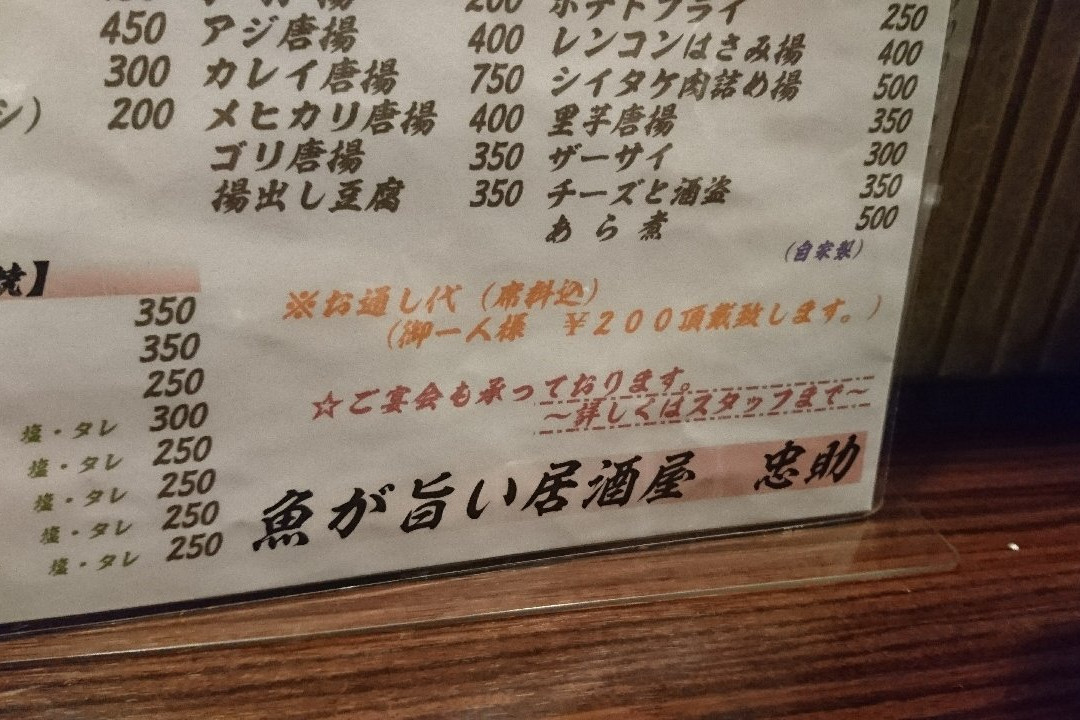 450 アジ唐揚 400 レンコンはさみ揚 250
300 カレイ唐揚 750 シイタケ肉詰め揚 400
シ） 200 メヒカリ唐揚 400 里芋唐揚 500
ゴリ唐揚 350 ザーサイ 350
揚出し豆腐 350 チーズと酒盗 300
あら煮 350
500
（自家製）
焼】
350
350
250
塩・タレ 300
塩・タレ 250
塩・タレ 250
塩・タレ 250
塩・タレ 250
※お通し代（席料込）
（御一人様 ￥２００頂戴致します。）
☆ご宴会も承っております。
～詳しくはスタッフまで～
魚が旨い居酒屋 忠助